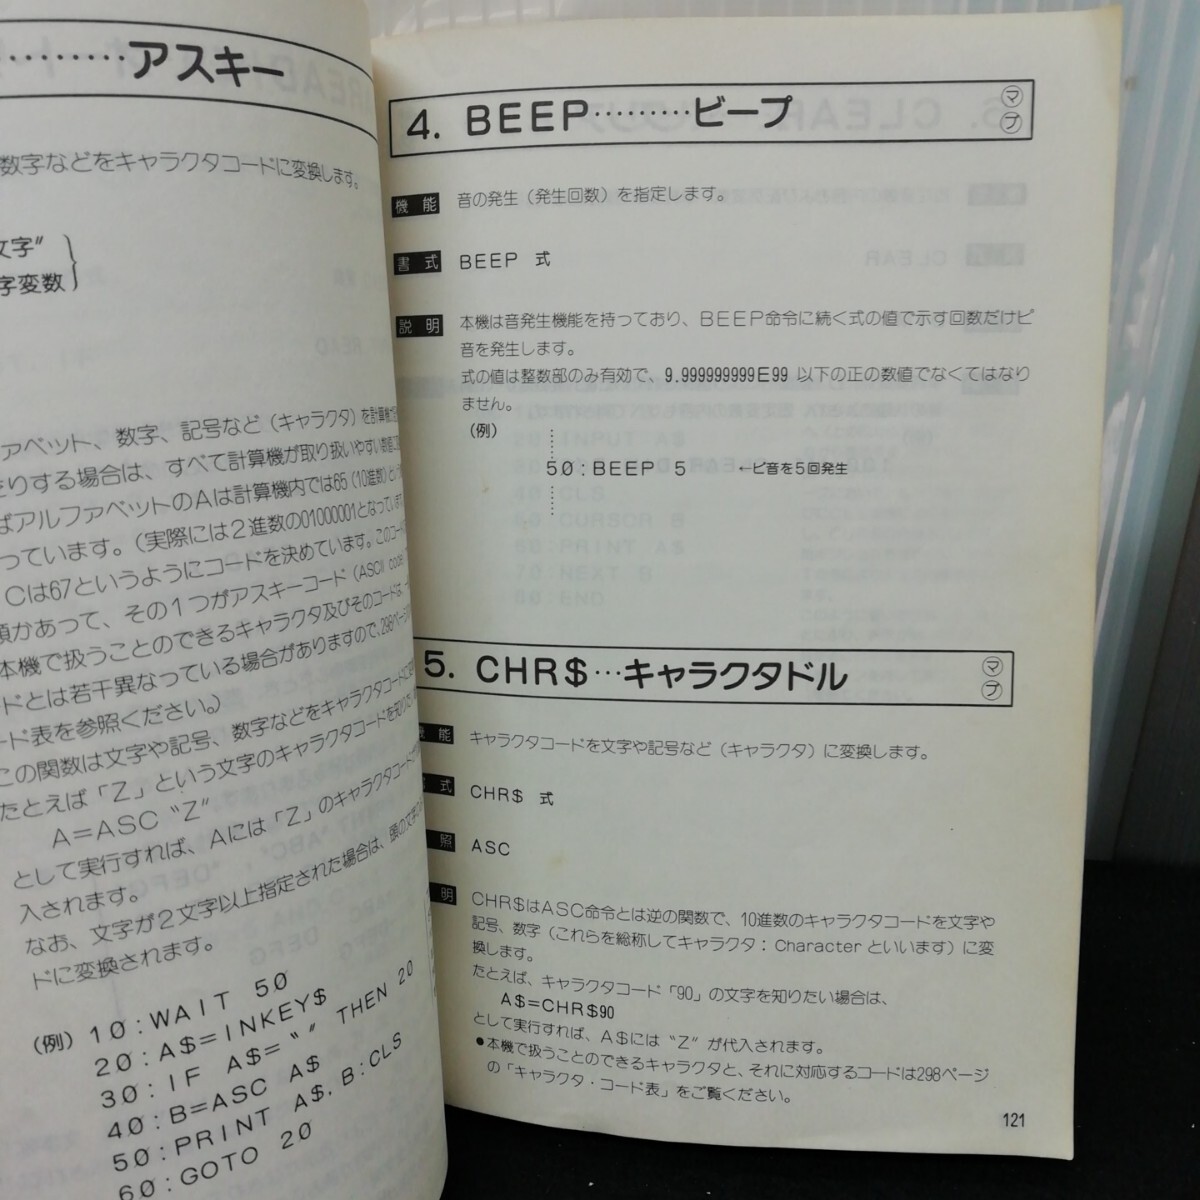 ………アスキー
数字などをキャラクタコードに変換します。
文字"
字変数
ァベット、数字、記号など（キャラクタ）を計算機で
をりする場合は、すべて計算機が取り扱いやすい数値に
ばアルファベットのAは計算機内では65（10進数）という
っています。（実際には2進数の01000001となっています
Cは67というようにコードを決めています。このコード
類かあって、その1つがアスキーコード（ASCII code
本機で扱うことのできるキャラクタ及びそのコードは、
ドとは若干異なっている場合がありますので、298ページ
ード表を参照ください。）
この関数は文字や記号、数字などをキャラクタコードに
たとえば「Z」という文字のキャラクタコードを知りた
A=ASC "Z"
として実行すれば、Aには「Z」のキャラクタコード
入されます。
なお、文字が2文字以上指定された場合は、頭の文字
ドに変換されます。
（例）10:WAIT 50
20:A$=INKEY$
30:IF A$="" THEN 20
40:B=ASC A$
50:PRINT A$, B:CLS
60:GOTO 20
4. BEEP………ビープ
マ
プ
機能 音の発生（発生回数）を指定します。
書式 BEEP 式
説明 本機は音発生機能を持っており、BEEP命令に続く式の値で示す回数だけピ
音を発生します。
式の値は整数部のみ有効で、9.999999999E99 以下の正の数値でなくてはなり
ません。
（例）
50:BEEP 5 ←ピ音を5回発生
5. CHR$…キャラクタドル
マ
プ
機能 キャラクタコードを文字や記号など（キャラクタ）に変換します。
式 CHR$ 式
照 ASC
明 CHR$はASC命令とは逆の関数で、10進数のキャラクタコードを文字や
記号、数字（これらを総称してキャラクタ：Characterといいます）に変
換します。
たとえば、キャラクタコード「90」の文字を知りたい場合は、
A$=CHR$90
として実行すれば、A$には "Z" が代入されます。
●本機で扱うことのできるキャラクタと、それに対応するコードは298ページ
の「キャラクタ・コード表」をご覧ください。
121